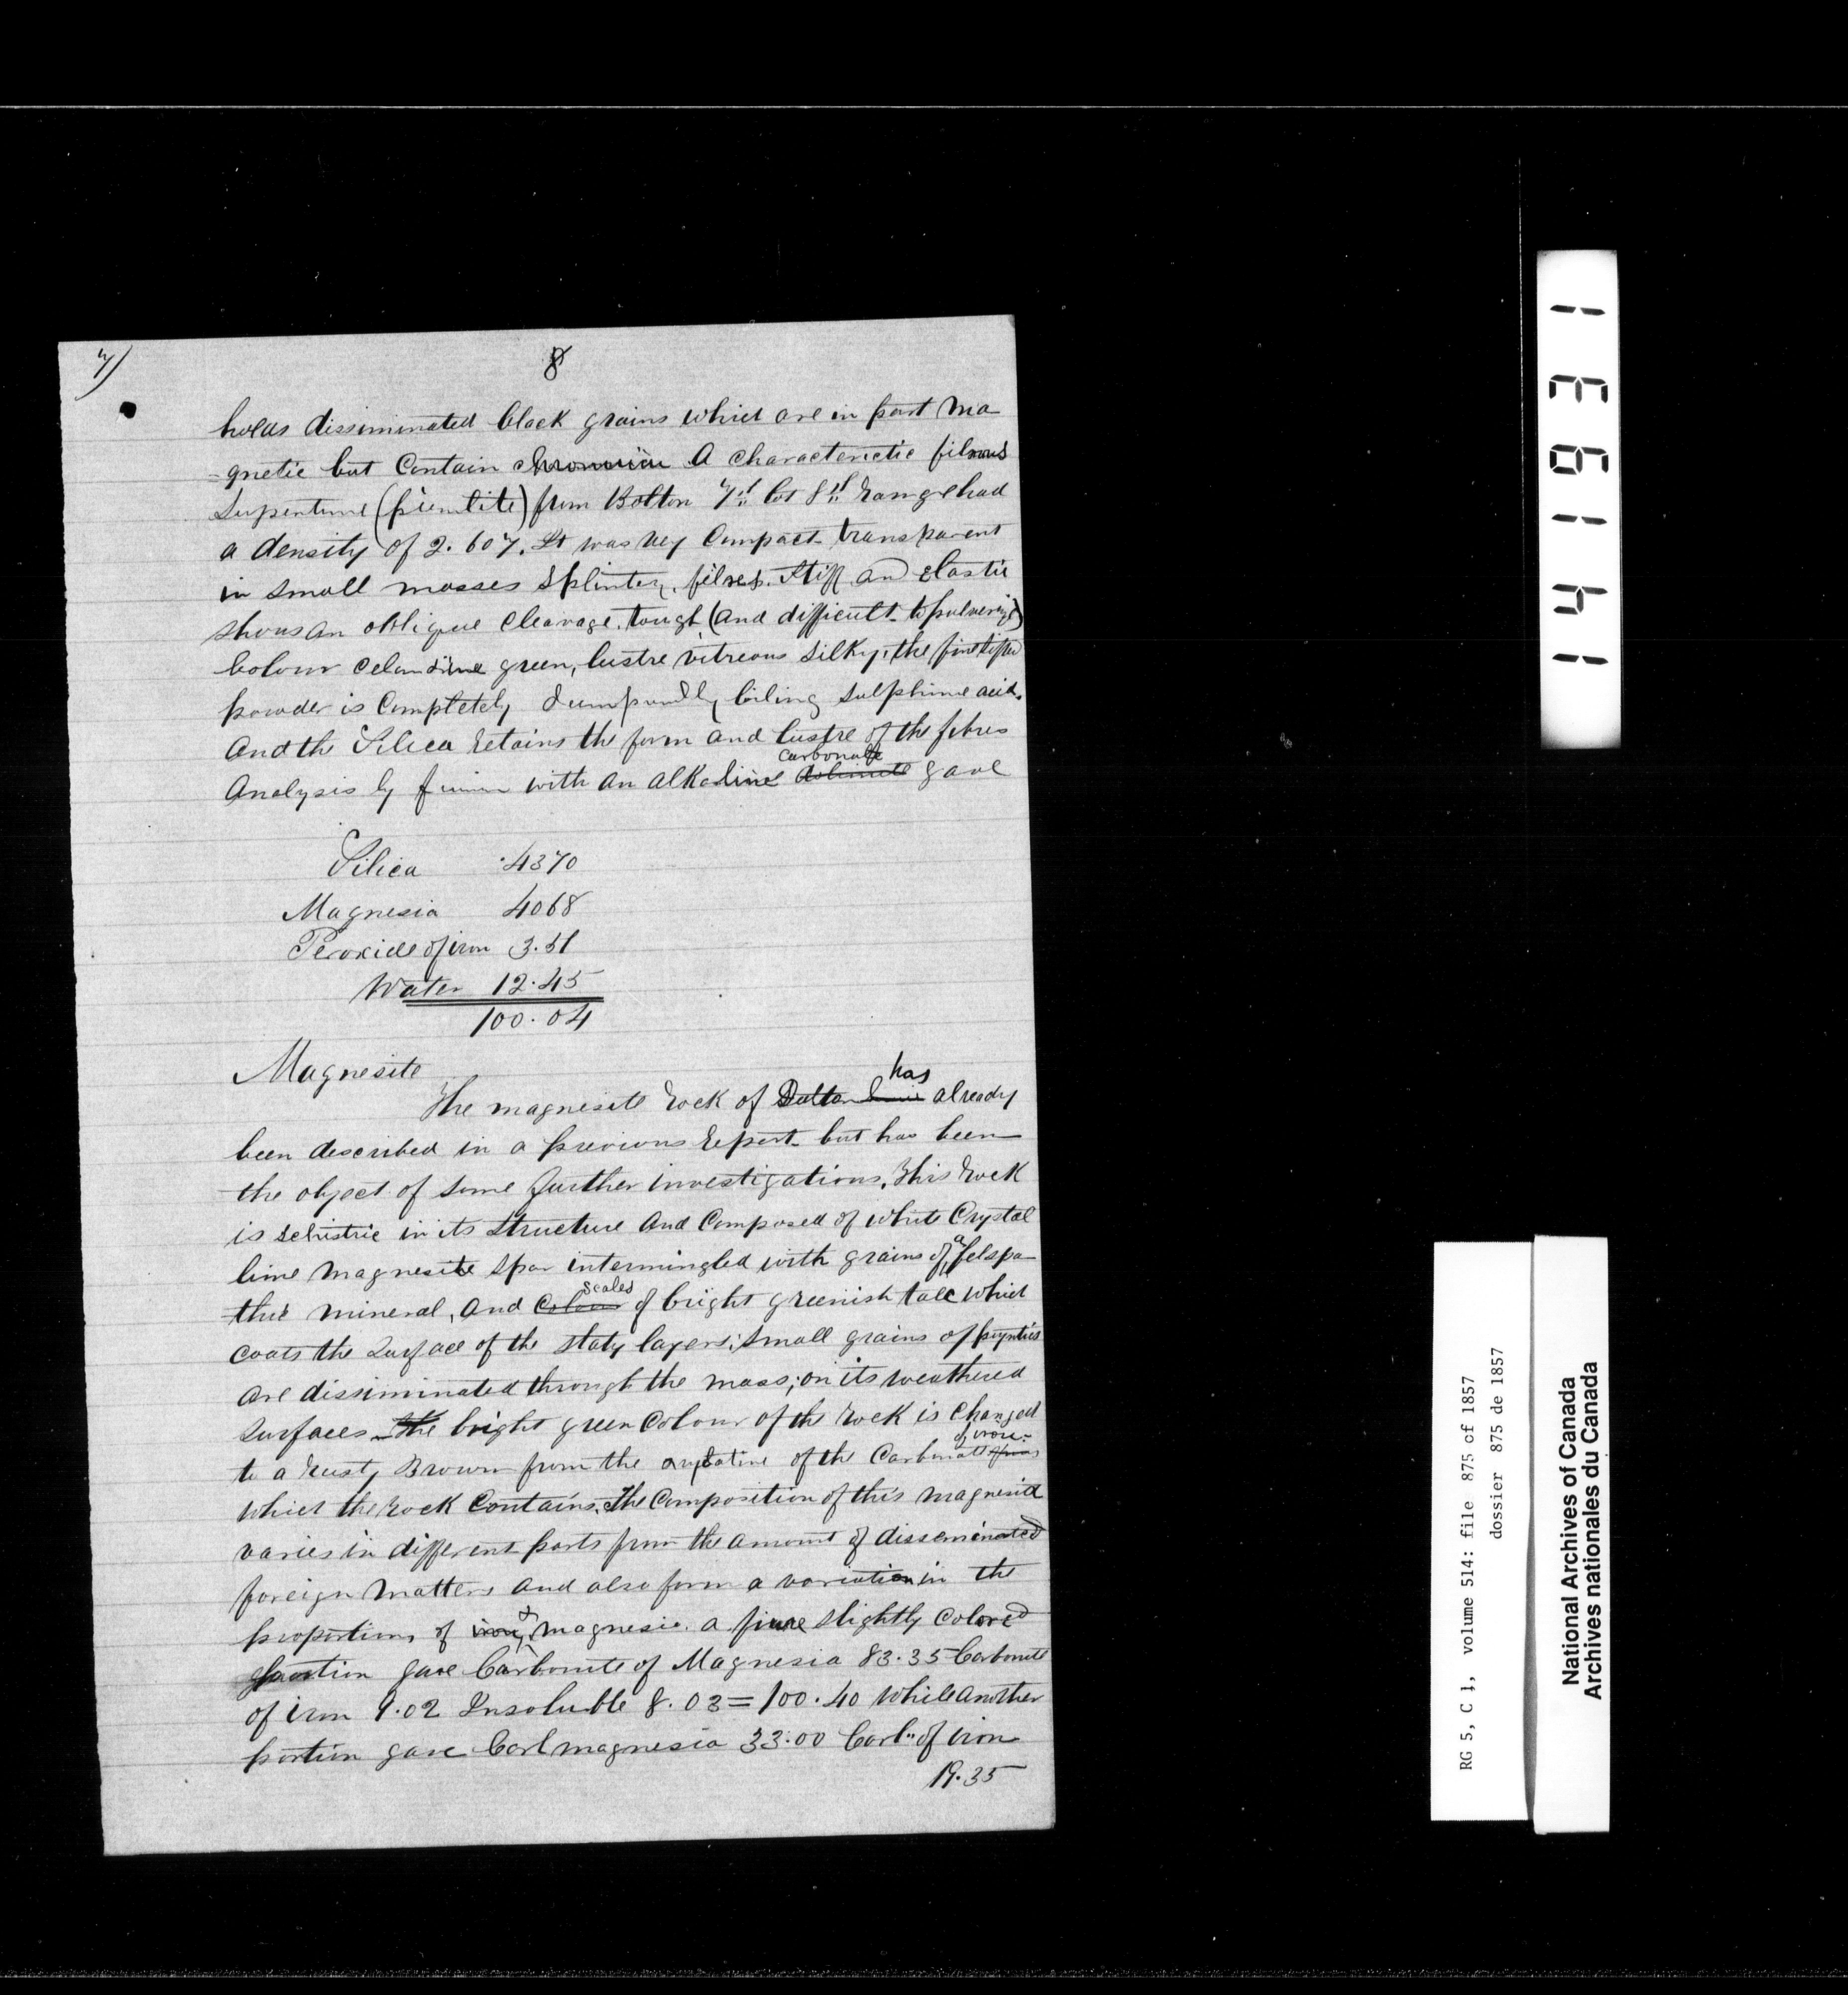 7)
8
holds dissiminated black grains which are in part ma-
-gnetic but contain chromium A characteristic fibrous
Serpentine (picrolite) from Bolton 7th lot 8th Range had
a density of 2.607. It was very Compact transparent
in small masses Splintery. fibres. Stiff and elastic
shows an oblique cleavage. tough (and difficult to pulverize)
Colour celandine green, lustre vitreous silky, the fine sifted
powder is completely by boiling sulphuric acid.
And the Silica retains the form and lustre of the fibres
carbonate
Analysis by fusion with an alkaline gave
Silica .4370
Magnesia 4068
Peroxide of iron 3.51
Water 12.45
100.04
Magnesite
has
The magnesite Rock of Sutton already
been described in a previous Report but has been
the object of some further investigations. This Rock
is schistric in its structure And Composed of white Crystal
line magnesite spar intermingled with grains of a felspa-
-thic mineral, and scales of bright greenish talc which
coats the surface of the slaty layers; small grains of pyrites
are dissiminated through the mass; on its weathered
surfaces the bright green colour of the Rock is changed
of iron
to a rusty Brown from the of the Carbonate
which the Rock contains. The Composition of this magnesia
varies in different parts from the amount of disseminated
foreign matters and also form a variation in the
proportions of iron & magnesia. a pure slightly colored
portion gave Carbonate of Magnesia 83.35 Carbonate
of iron 9.02 Insoluble 8.03 = 100.40 while another
portion gave Carb magnesia 33.00 Carb" of iron
19.35
141631
RG 5, C 1, volume 514: file 875 of 1857
dossier 875 de 1857
National Archives of Canada
Archives nationales du Canada